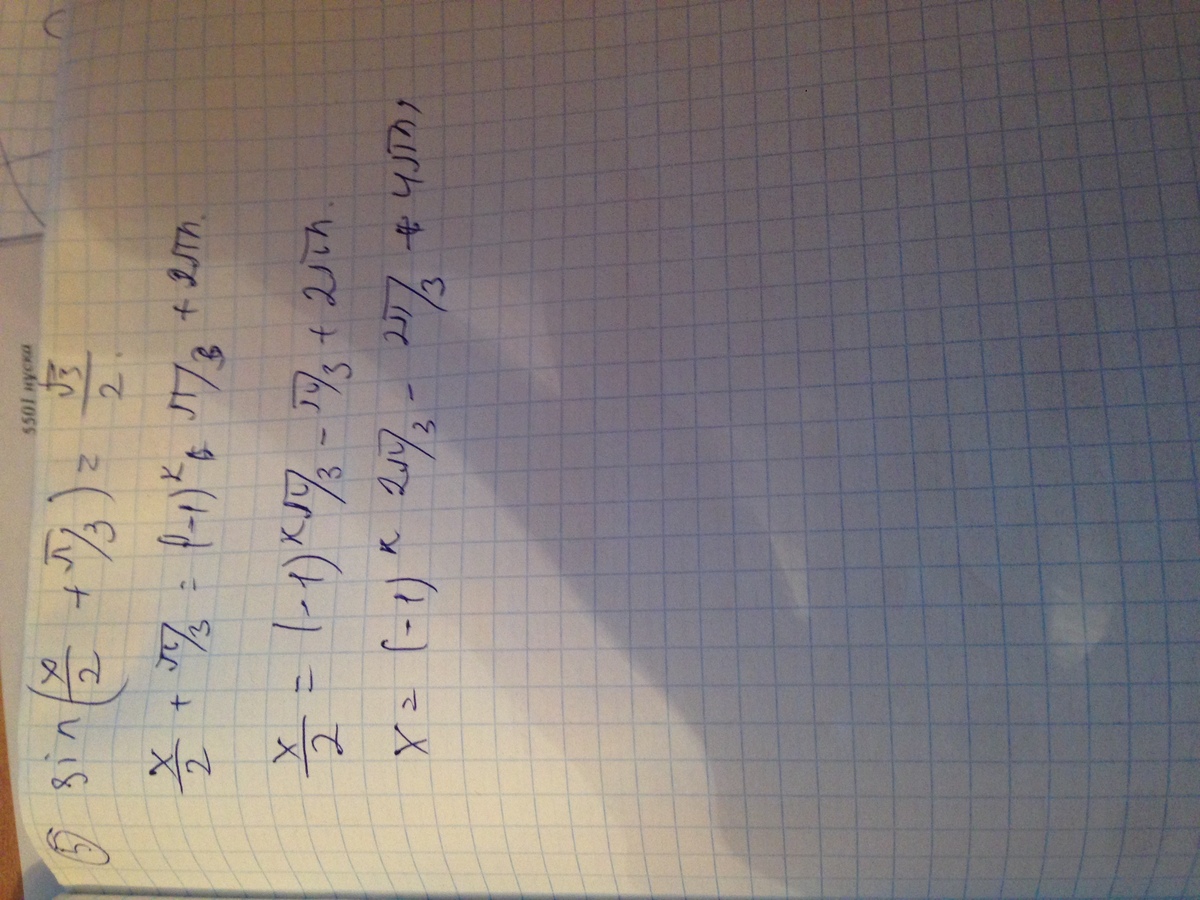 5501 пуска
⑤ sin(x/2 + π/3) = √3/2.
x/2 + π/3 = (-1)^k π/3 + 2πn.
x/2 = (-1)^k π/3 - π/3 + 2πn.
x = (-1)^k 2π/3 - 2π/3 + 4πn,